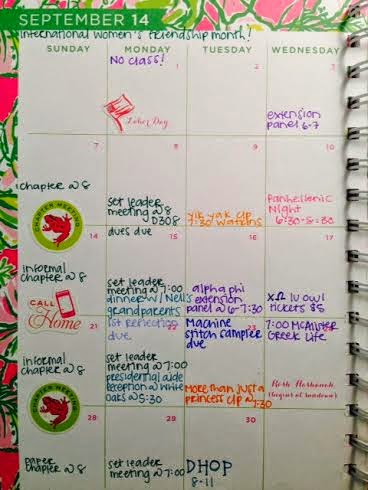 SEPTEMBER 14
International Women's Friendship month!
SUNDAY
MONDAY
TUESDAY
WEDNESDAY
1
No class!
Labor Day
2
3
extension
panel 6-7
7
chapter @ 8
CHAPTER MEETING
8
set leader
meeting @ 8
D308
9
yik yak CLP
7:30 Watkins
10
Panhellenic
Night
6:30-8:30
14
informal
chapter @ 8
CALL
Home
dues due
15
set leader
meeting @ 7:00
dinner w/ Nell's
grandparents
16
alpha phi
extension
panel @ 6-7:30
17
XΩ IU owl
tickets $5
21
informal
chapter @ 8
CHAPTER MEETING
1st reflection
due
22
set leader
meeting @ 7:00
presidential aide
reception @ White
Oaks @ 5:30
23
Machine
stitch sampler
due
More than just a
princess CLP @ 7:30
7:00 McAlister
Greek Life
Rosh Hashanah
(begins at sundown)
28
paper
chapter @ 8
29
set leader
meeting @ 7:00
30
DHOP
8-11